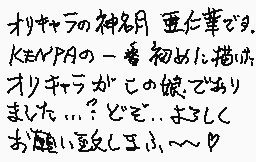 オリキャラの神名月 亜仁華です。
KENPAの一番初めに描いた
オリキャラがこの娘であり
ました…？どぞ..よろしく
お願い致しまふ〜♡